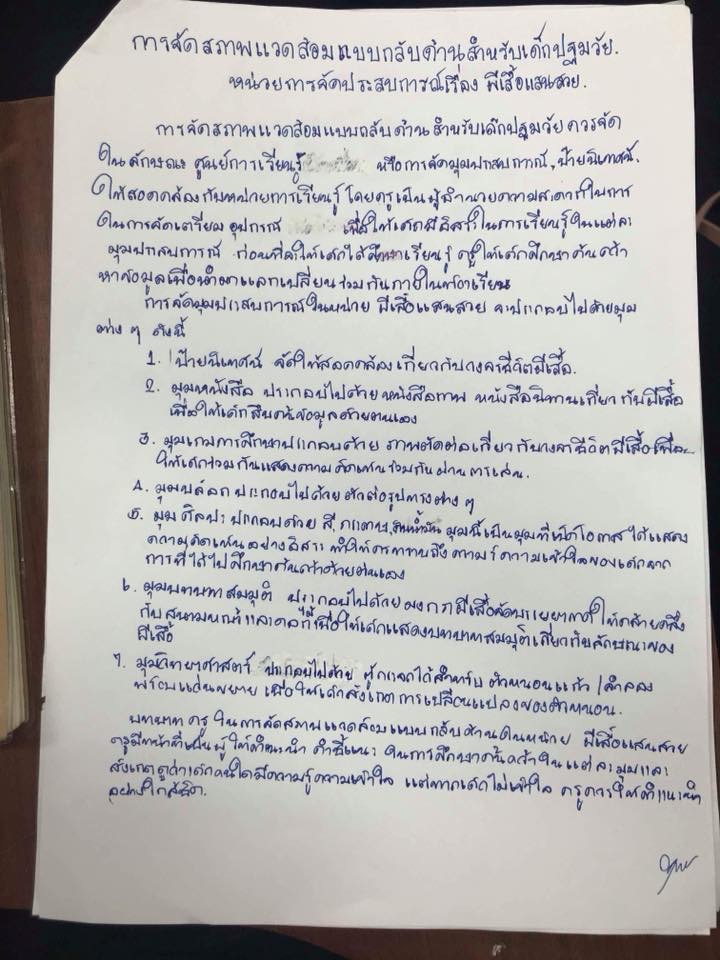 การจัดสภาพแวดล้อมแบบกลับด้านสำหรับเด็กปฐมวัย.
หน่วยการจัดประสบการณ์เรื่อง ผีเสื้อแสนสวย.
การจัดสภาพแวดล้อมแบบกลับด้าน สำหรับเด็กปฐมวัย ควรจัด
ในลักษณะ ศูนย์การเรียนรู้ หรือการจัดมุมประสบการณ์, ป้ายนิเทศน์.
ให้สอดคล้องกับหน่วยการเรียนรู้ โดยครูเป็นผู้อำนวยความสะดวกในการ
ในการจัดเตรียม อุปกรณ์ เพื่อให้เด็กมีอิสระในการเรียนรู้ในแต่ละ
มุมประสบการณ์ ก่อนที่จะให้เด็กได้ศึกษาเรียนรู้ ครูให้เด็กศึกษาค้นคว้า
หาข้อมูลเพื่อนำมาแลกเปลี่ยนร่วมกันภายในห้องเรียน
การจัดมุมประสบการณ์ในหน่วย ผีเสื้อแสนสวย จะประกอบไปด้วยมุม
ต่าง ๆ ดังนี้
1. ป้ายนิเทศน์ จัดให้สอดคล้องเกี่ยวกับวงจรชีวิตผีเสื้อ.
2. มุมหนังสือ ประกอบไปด้วยหนังสือภาพ หนังสือนิทานเกี่ยวกับผีเสื้อ
เพื่อให้เด็กสืบค้นข้อมูลด้วยตนเอง
3. มุมเกมการศึกษาประกอบด้วย ภาพตัดต่อเกี่ยวกับวงจรชีวิตผีเสื้อเพื่อ
ให้เด็กร่วมกันแสดงความคิดเห็นร่วมกันผ่านการเล่น.
4. มุมบล็อก ประกอบไปด้วย ตัวต่อรูปทรงต่าง ๆ
5. มุมศิลปะ ประกอบด้วย สี, กระดาษ, ดินน้ำมัน มุมนี้เป็นมุมที่เปิดโอกาสได้แสดง
ความคิดเห็นอย่างอิสระ ทำให้ครูทราบถึงความรู้ความเข้าใจของเด็กจาก
การที่ได้ไปศึกษาค้นคว้าด้วยตนเอง
6. มุมบทบาทสมมุติ ประกอบไปด้วย ผีเสื้อจัดบรรยากาศให้คล้ายคลึง
กับสนามหญ้าและดอกไม้เพื่อให้เด็กแสดงบทบาทสมมุติเกี่ยวกับลักษณะของ
ผีเสื้อ
7. มุมวิทยาศาสตร์ ประกอบไปด้วย ตู้กระจกใส่สำหรับ ตัวหนอนแก้ว จำลอง
พร้อมแว่นขยาย เพื่อให้เด็กสังเกต การเปลี่ยนแปลงของตัวหนอน.
บทบาท ครู ในการจัดสภาพแวดล้อมแบบกลับด้านในหน่วย ผีเสื้อแสนสวย
ครูมีหน้าที่เป็น ผู้ให้คำแนะนำ คำชี้แนะ ในการศึกษาค้นคว้าในแต่ละมุมและ
สังเกตดูว่าเด็กคนใดมีความรู้ความเข้าใจ แต่หากเด็กไม่เข้าใจ ครูควรให้คำแนะนำ
อย่างใกล้ชิด.